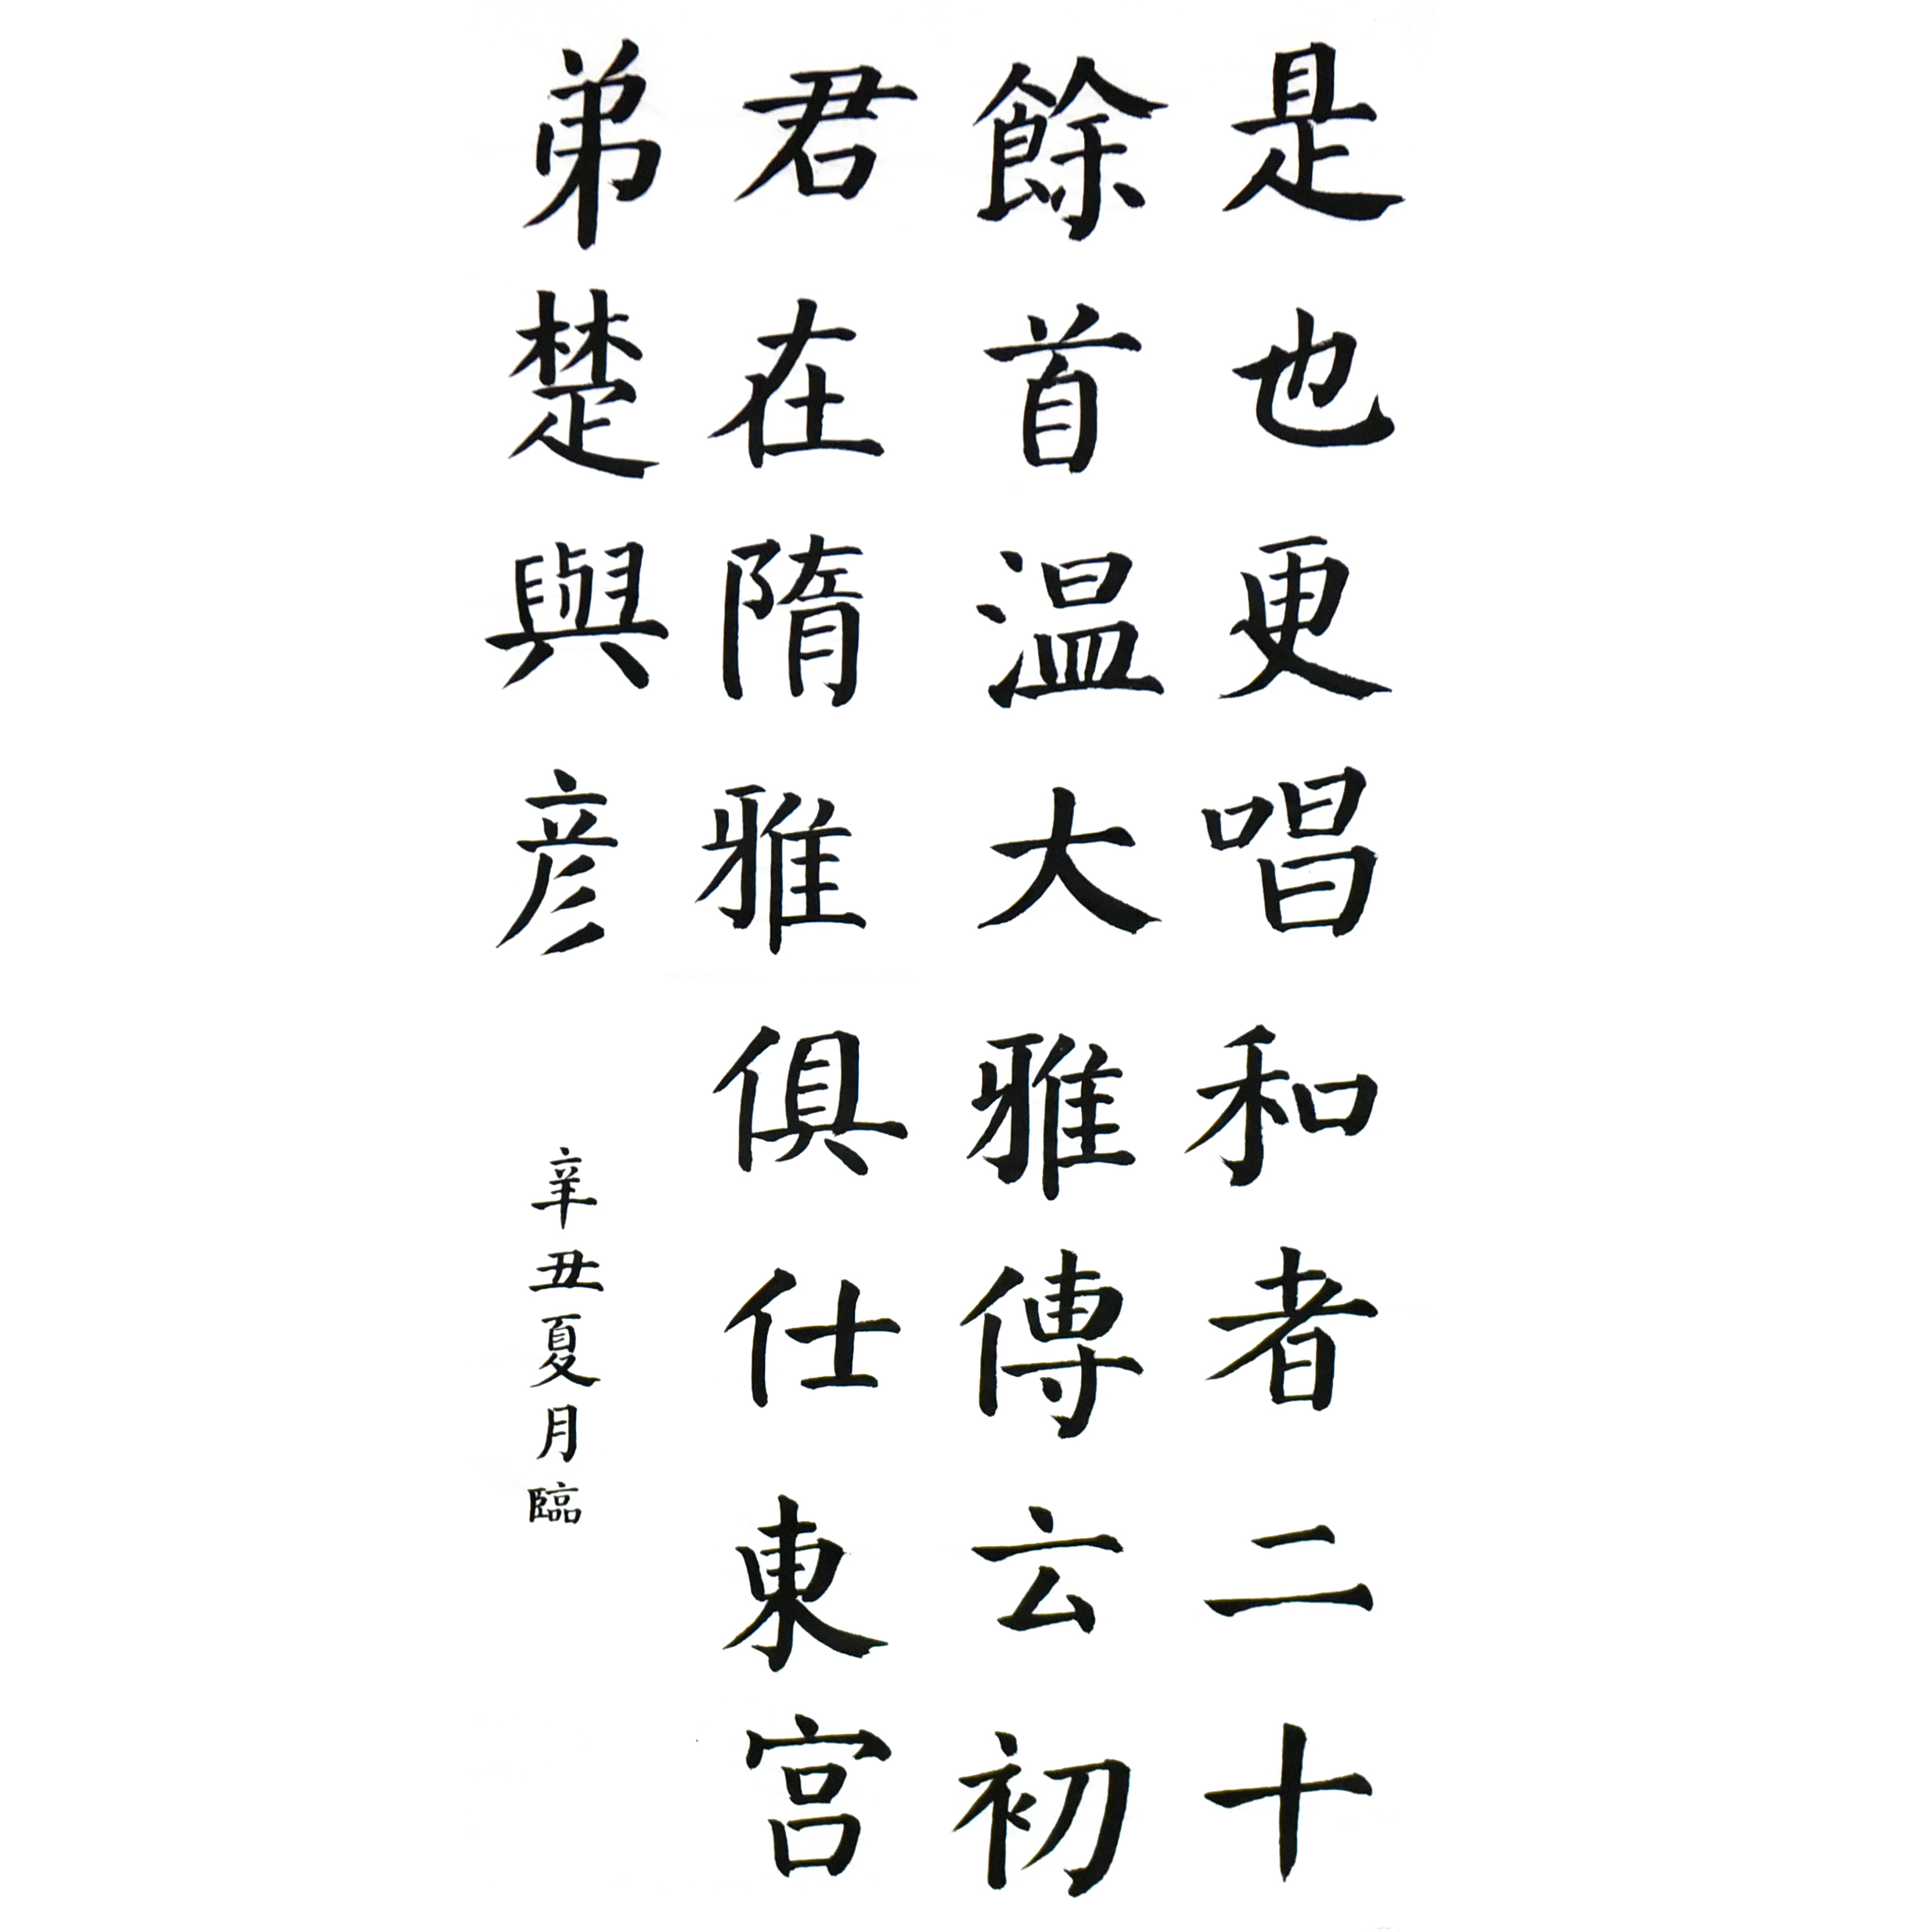 是也更唱和者二十
餘首温大雅傳云初
君在隋雅俱仕東宫
弟楚與彦
辛丑夏月臨